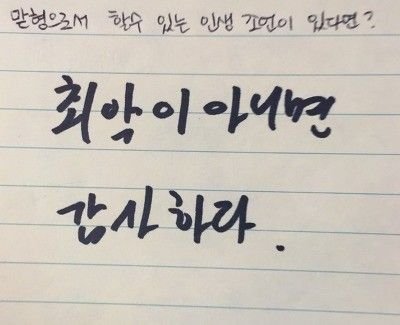 맏형으로서 할수 있는 인생 조언이 있다면?
최악이 아니면
감사하다.